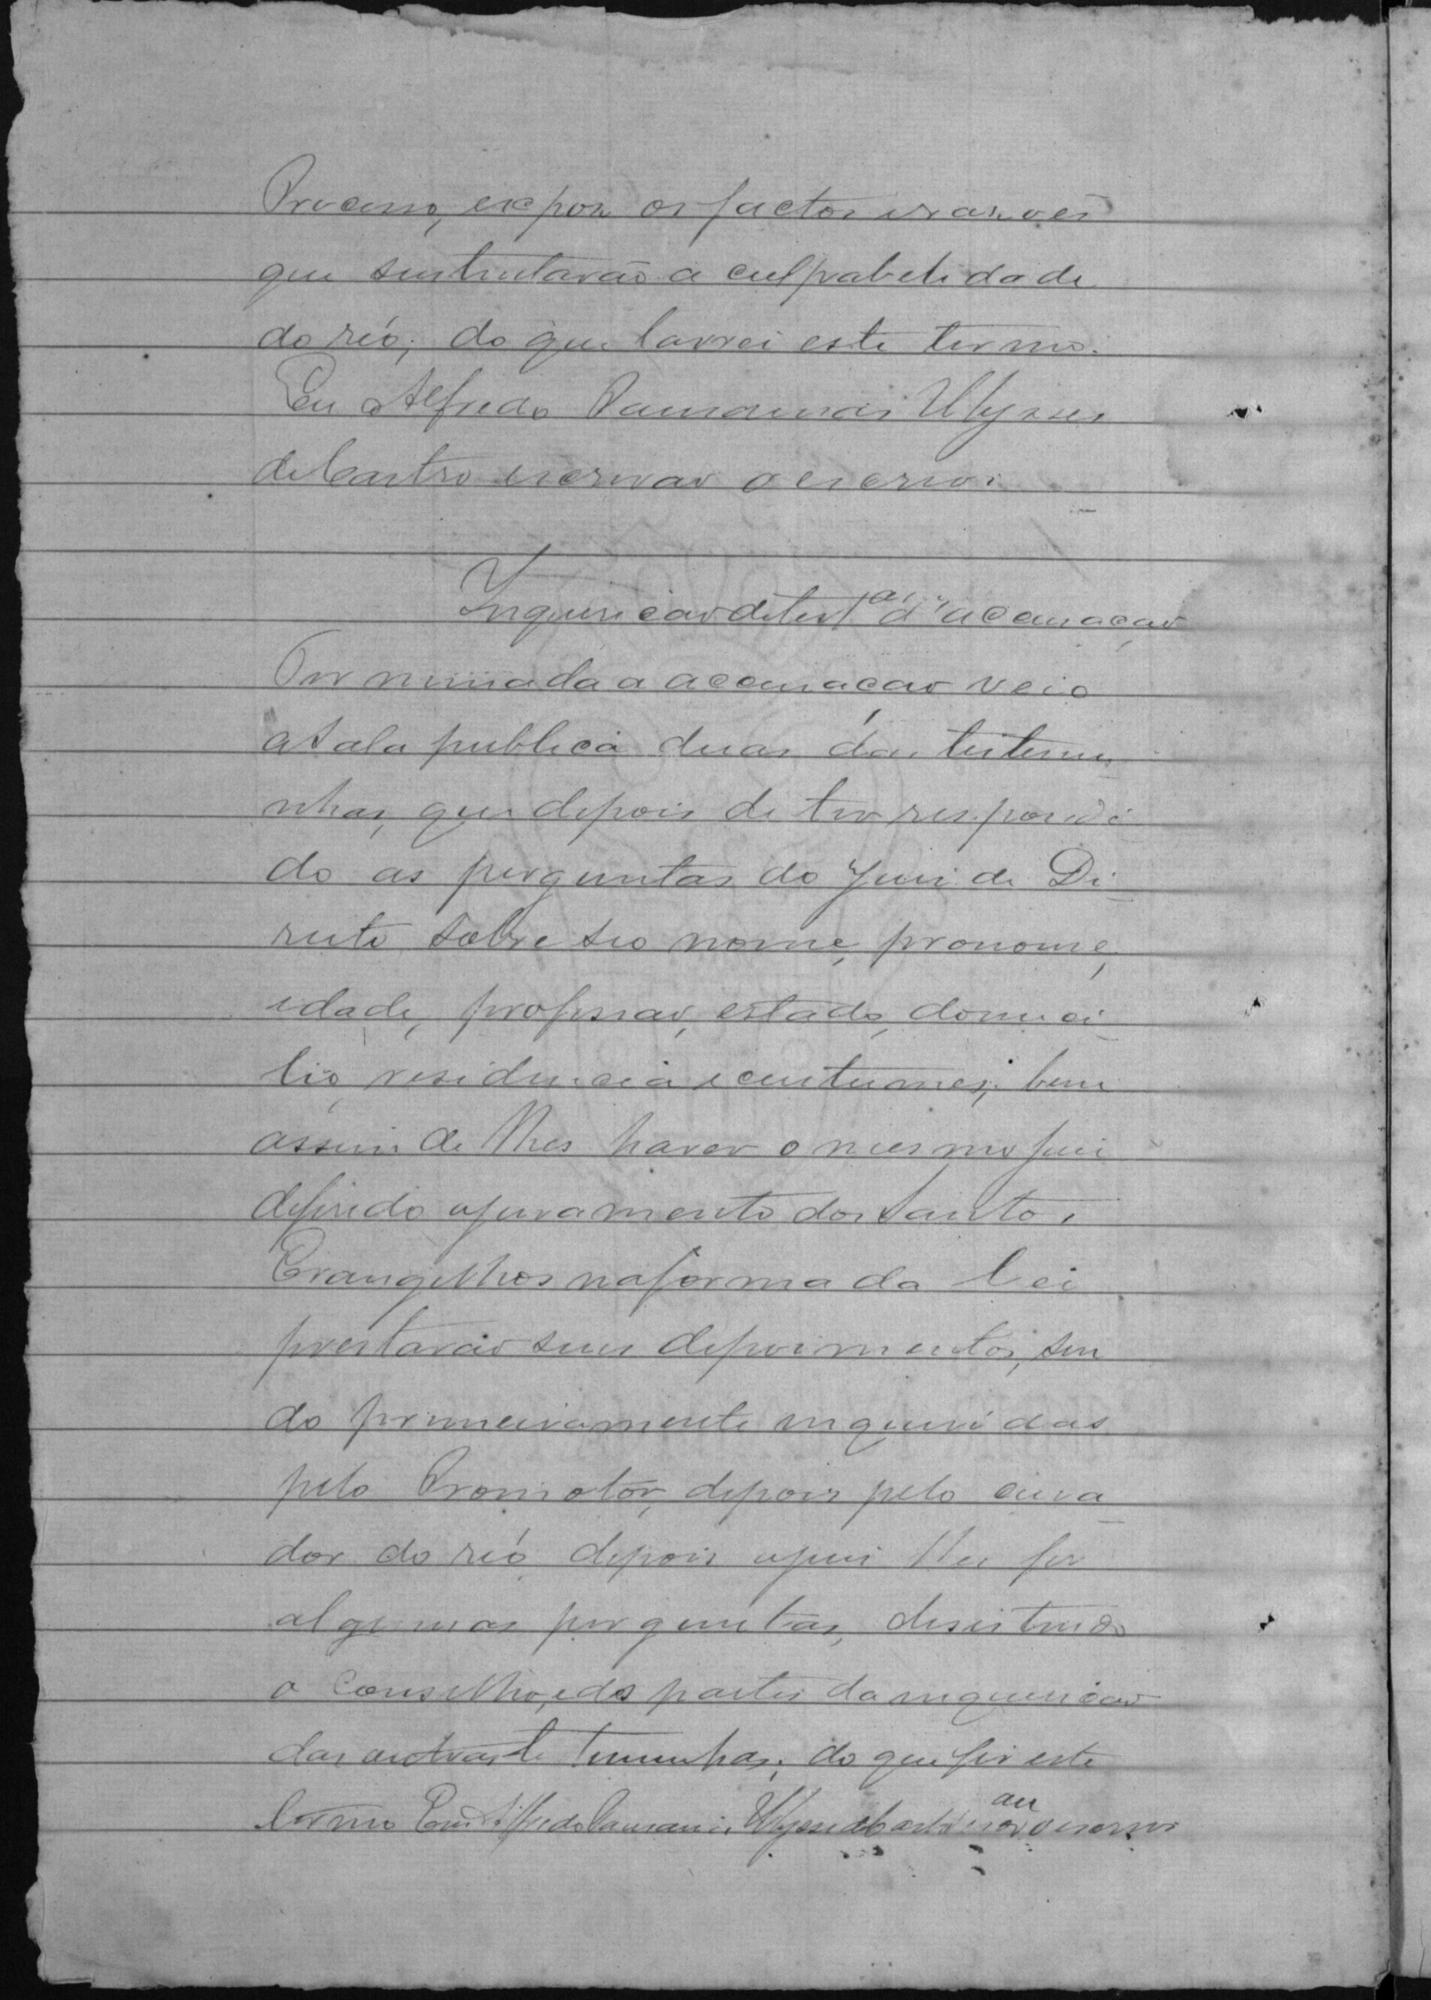 Processo, expoz os factos e razoes
que sustentarão a culpabelidade
do réo; do que lavrei este termo.
Eu Alfredo Pausanias Ulysses
de Castro escrivao o escrevi
Inquericao de test.as d'acousaçao
Terminada a acousaçao veio
a sala publica duas das testemu
nhas, que depois de ter respondi
do as perguntas do Juiz de Di
reito sobre seo nome, pronome,
idade, profissao, estado, domici
lio, residencia e custumes; bem
assim de lhes haver o mesmo juiz
deferido o juramento dos Santos
Evangelhos na forma da Lei
prestarão seus depoimentos, sen
do primeiramente inqueridas
pelo Promotor, depois pelo cura
dor do réo depois o juiz lhes fez
algumas perguntas, desistindo
o conselho, e as partes da inquericao
das outras testemunhas; do que fiz este
termo Eu Alfredo Pausanias Ulysses de Castro escr.am o escrevi